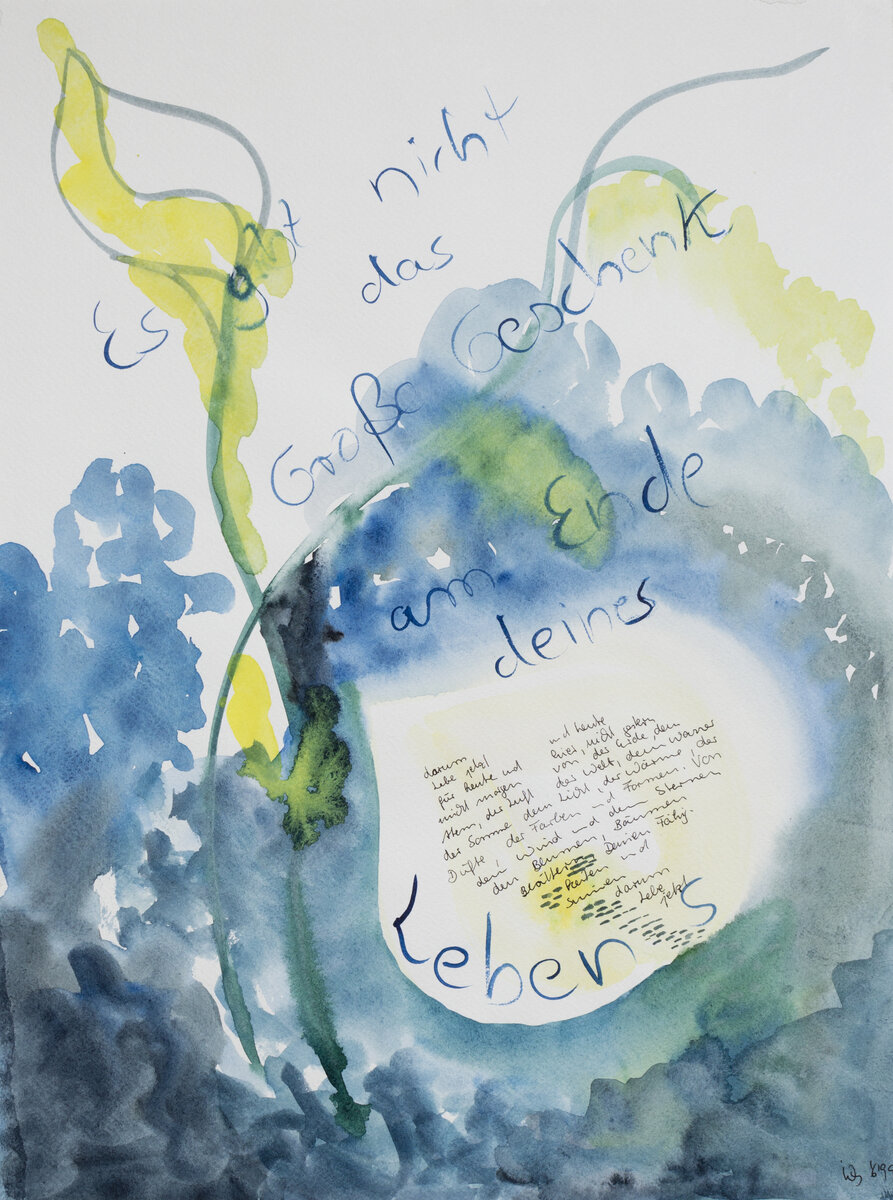 Es gibt nicht
das
Große Geschenk
am Ende
deines
darum und heute
Lebe jetzt hier, nicht gestern
für heute und von der Erde, dem
nicht morgen der Welt, dem Wasser
der Luft
der Sonne dem Licht, der Wärme, der
Düfte, der Farben und Formen. Von
dem Wind und den Sternen
den Blumen, Bäumen
Blättern Deinen Fähig.
keiten und
Sinnen darum
Lebe jetzt
Lebens